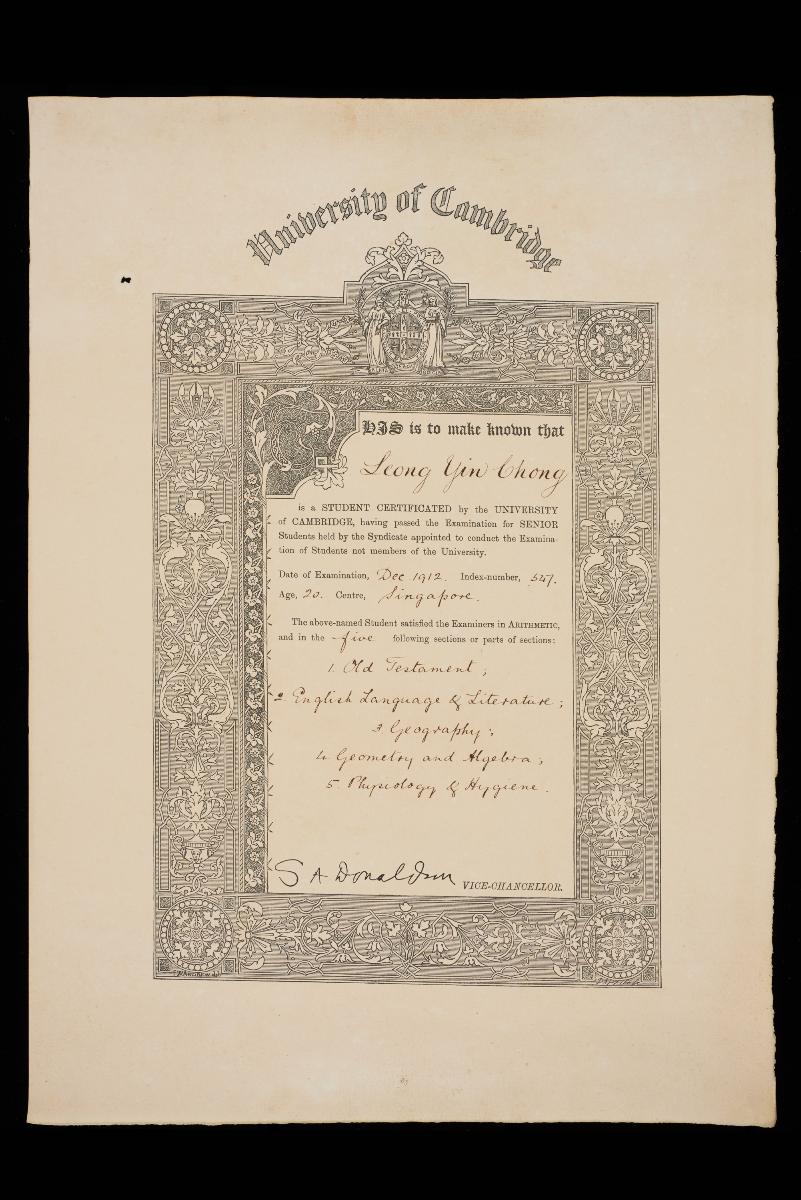 University of Cambridge
THIS is to make known that
Leong Yin Chong
is a STUDENT CERTIFICATED by the UNIVERSITY
of CAMBRIDGE, having passed the Examination for SENIOR
Students held by the Syndicate appointed to conduct the Examina-
tion of Students not members of the University.
Date of Examination, Dec. 1912. Index-number, 547.
Age, 20. Centre, Singapore.
The above-named Student satisfied the Examiners in ARITHMETIC,
and in the five following sections or parts of sections:
1. Old Testament;
2. English Language & Literature;
3 Geography;
4 Geometry and Algebra;
5. Physiology & Hygiene.
S A Donaldson VICE-CHANCELLOR.